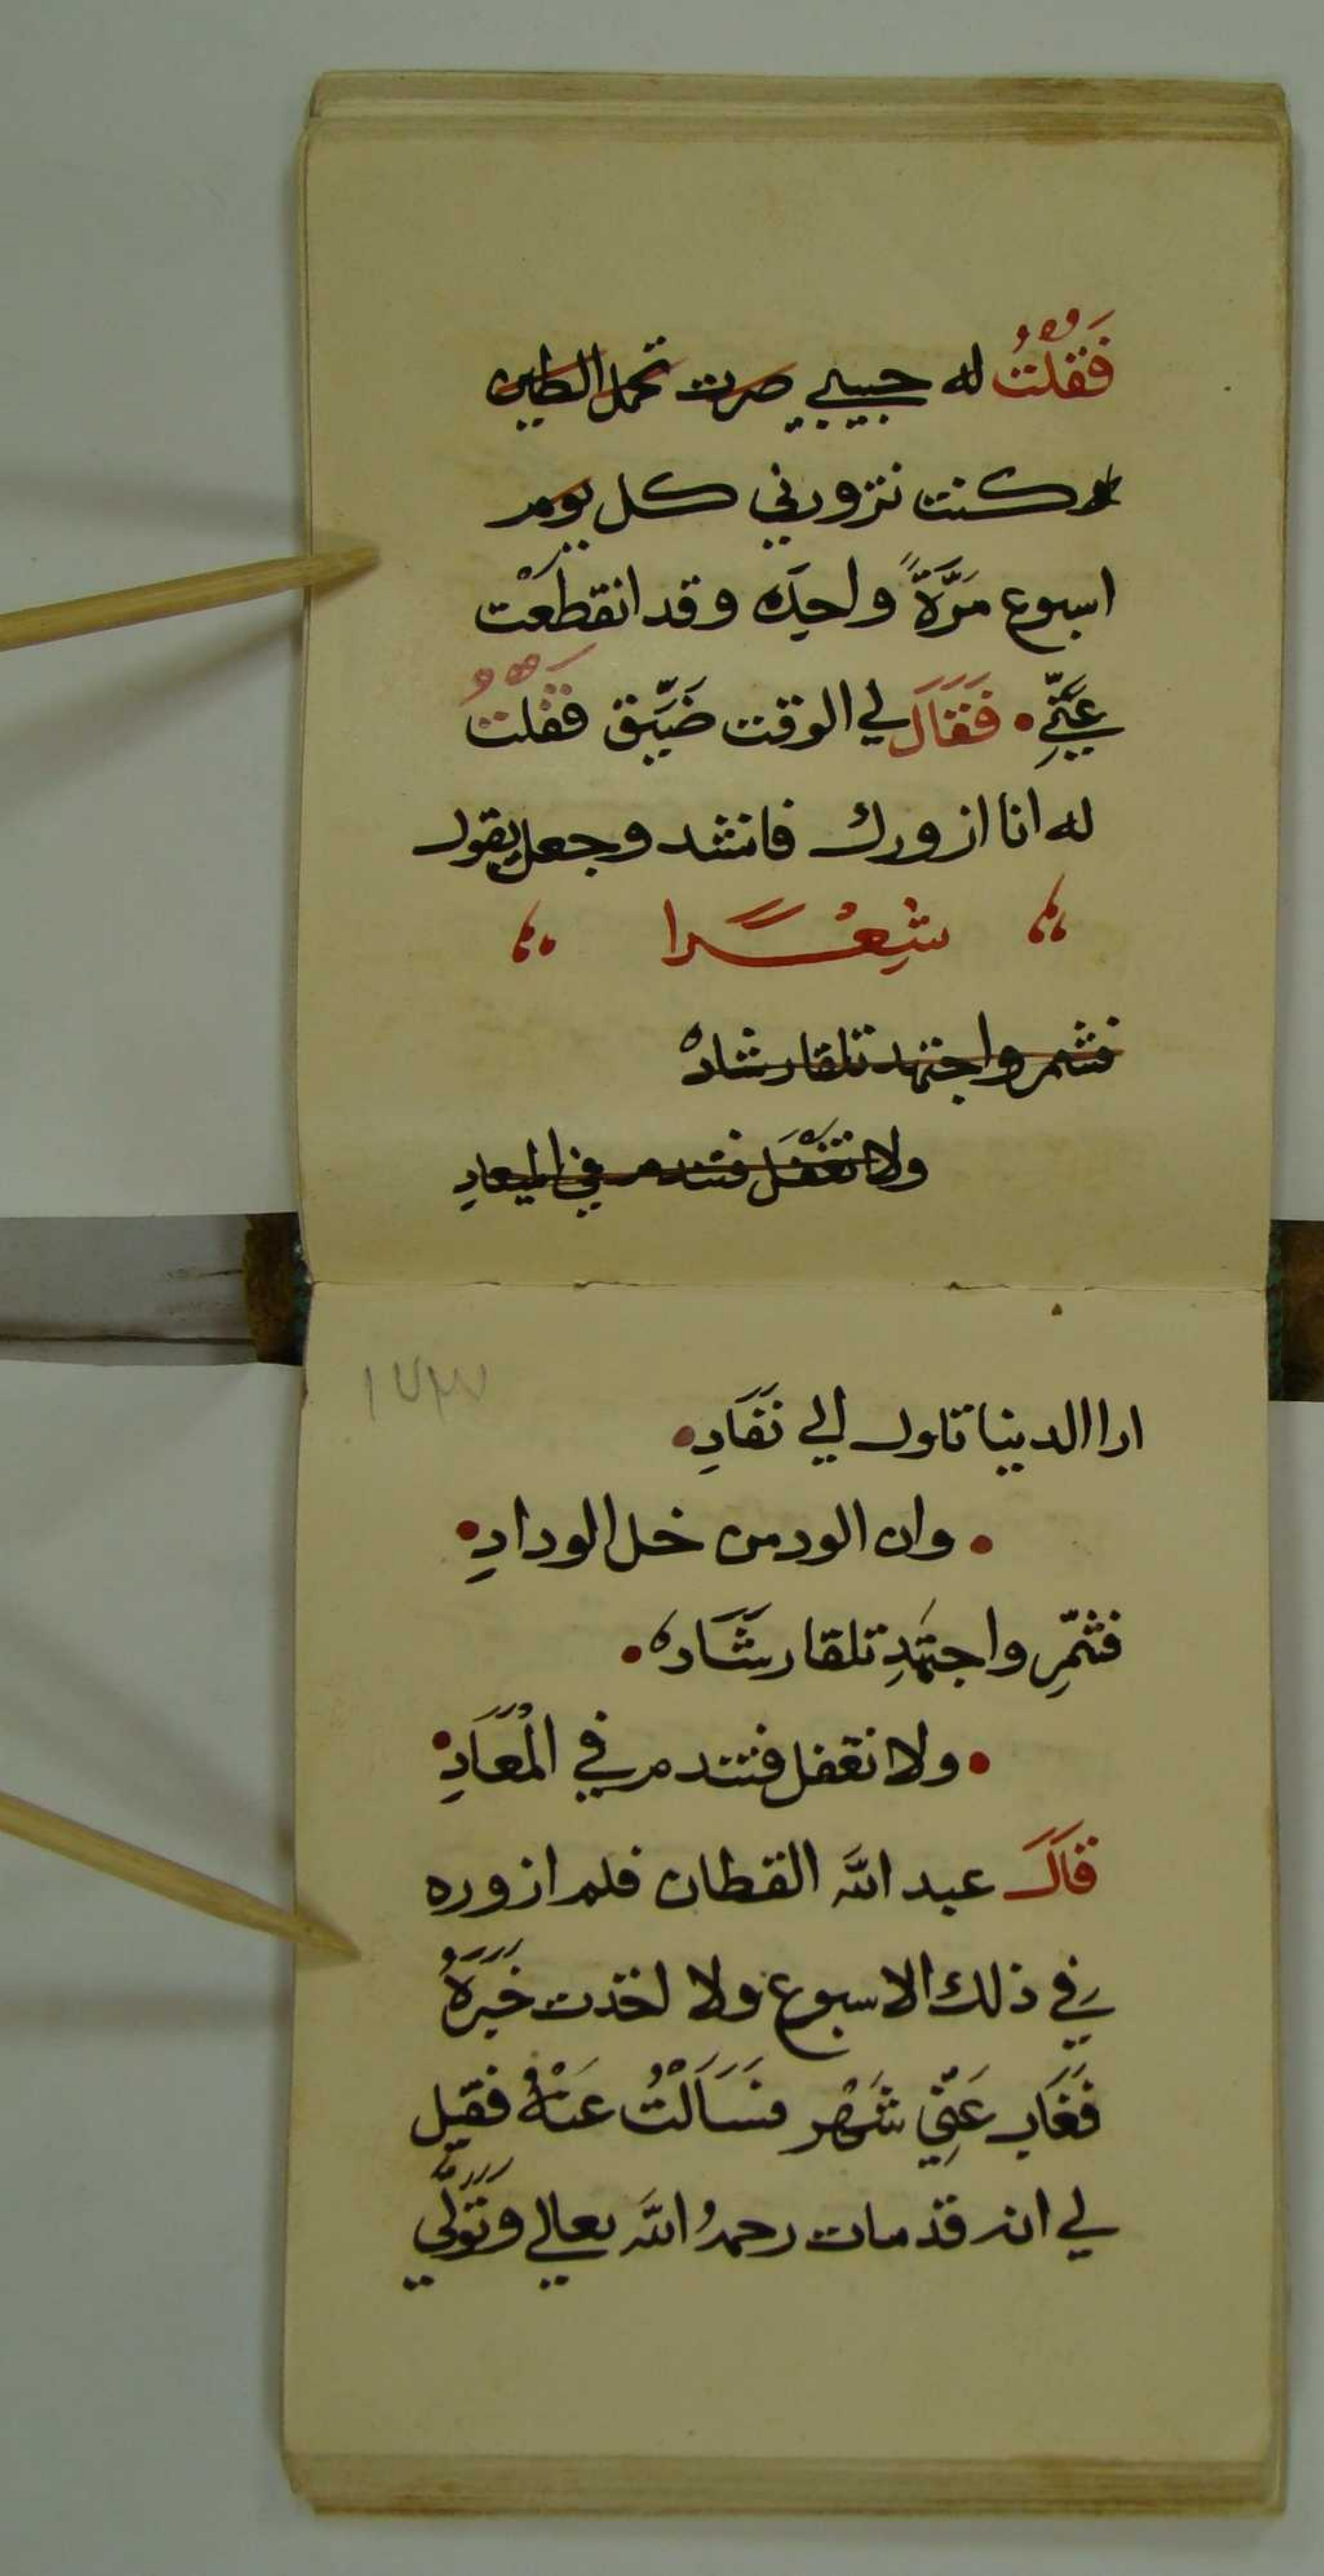 فَقُلْتُ له حبيبي صرت تحمل الطين
كنت تزورني كل يوم
اسبوع مَرَّةً واحِدَه وقد انقطَعْت
عَنِّي • فَقَالَ لي الوقت ضَيِّق فقُلْتُ
له انا ازورك فانشد وجعل يقول
شِعْرًا
فشمر واجتهد تلقا رشاده
ولا تَغْفَل فتندم في الميعادِ
١٧٣
ارا الدنيا تاول الي نَفَادِ •
• وان الود من خل الودادِ •
فشمِّر واجتَهِدِ تلقا رشَاده •
• ولا تغفل فتندم في الْمَعَادِ •
قَالَ عبد الله القطان فلم ازوره
في ذلك الاسبوع ولا اخذت خَبَرَهُ
فَغَاب عَنِّي شَهْر فسَاَلْتُ عَنْهُ فقيل
لي انه قد مات رحمهُ اللَّه تعالي وتَوَلَّي